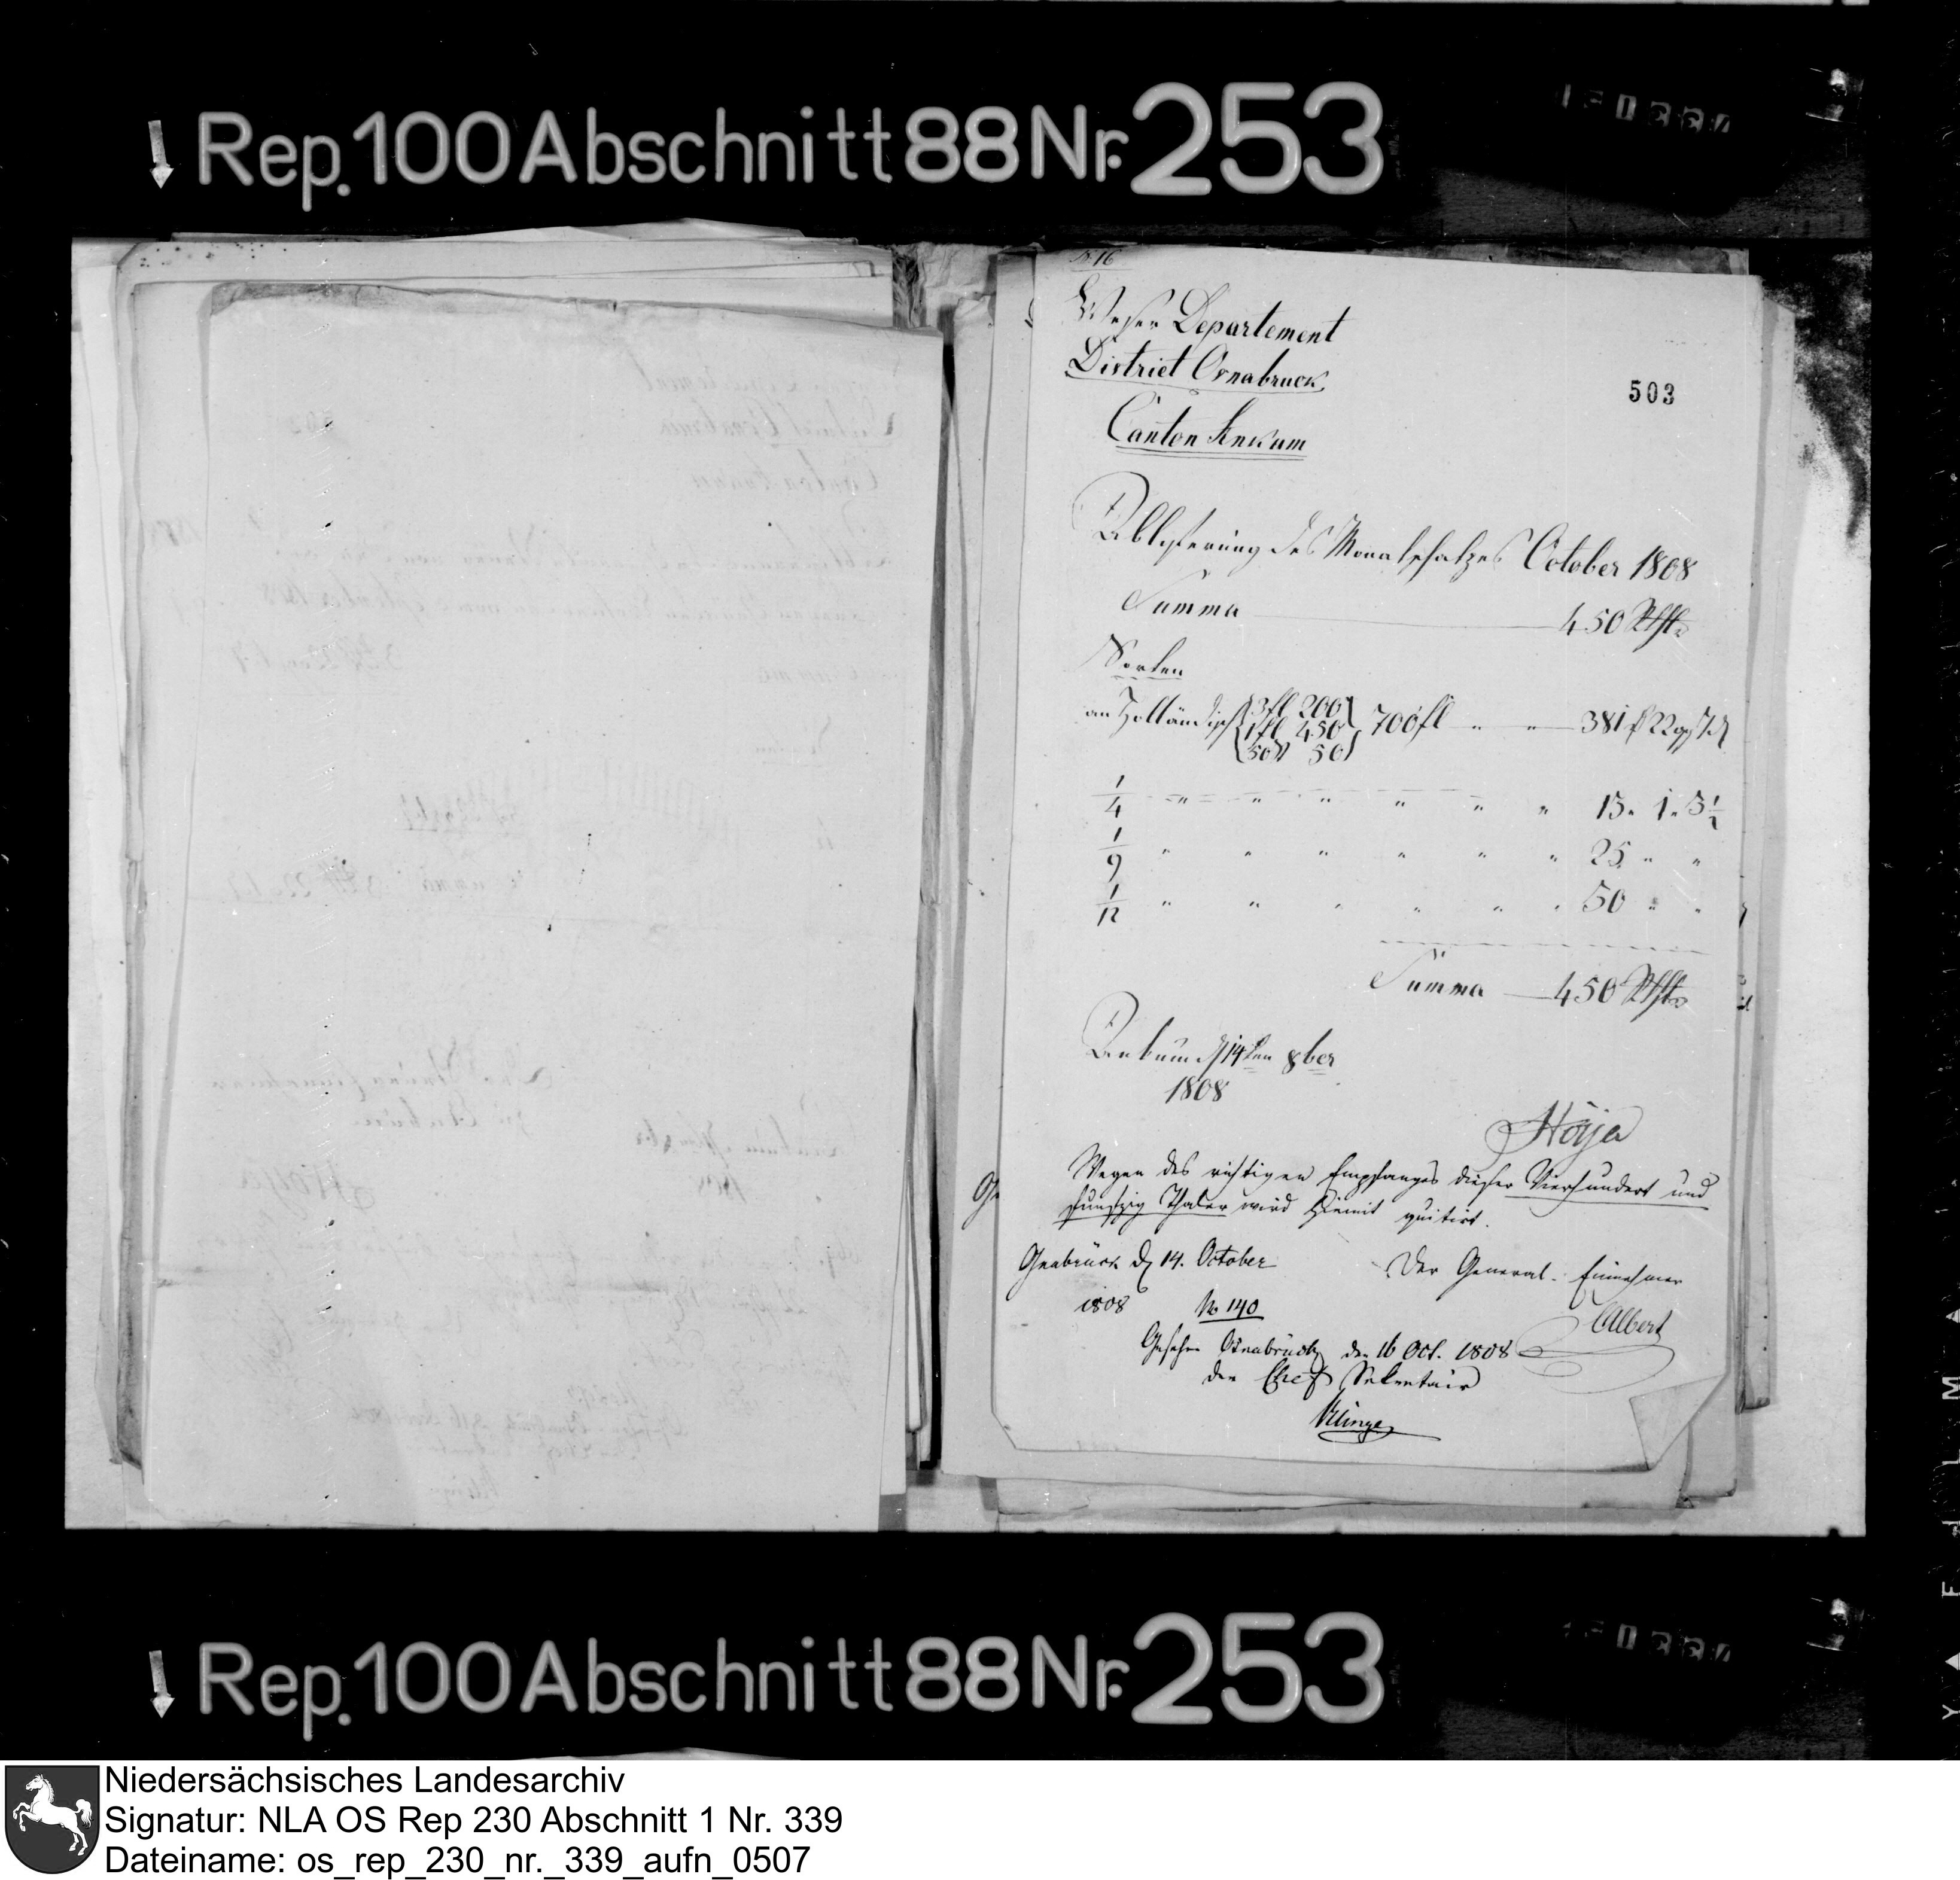 Rep. 100 Abschnitt 88 Nr. 253
N 16
Weser Departement
District Osnabruck
503
Canton Ankum
Ablieferung des Monatssatzes October 1808
Summa 450 Rthlr
Sorten
an Holländisch 3 fl 200
1 fl 450
50 50
700 fl " " 381 22 7
1/4 " " " " " " 13 " 1 " 3 1/2
1/9 " " " " " " 25 " "
1/12 " " " " " " 50 " "
Summa 450 Rthlr
Ankum d 14ten 8ber
1808
Hoÿa
Wegen des richtigen Empfanges dieser Vierhundert und
funfzig Thaler wird hiemit quitirt.
Osnabrück d 14. October
1808
Der General-Einnehmer
Albert
No 140
Gesehen Osnabrück den 16 Oct. 1808
der Chef Sekretair
Rep. 100 Abschnitt 88 Nr. 253
Niedersächsisches Landesarchiv
Signatur: NLA OS Rep 230 Abschnitt 1 Nr. 339
Dateiname: os_rep_230_nr._339_aufn_0507